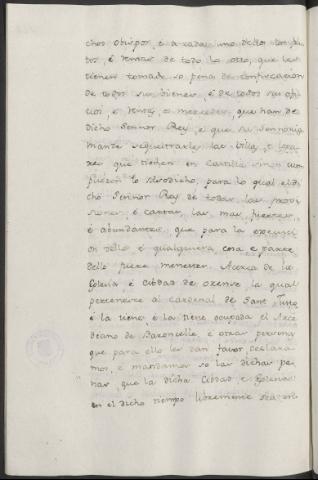 chos obispos, é a cada uno dellos los fru
tos, é rentas de todo lo otro, que les
tienen tomado so pena de confiscacion
de todos sus bienes, é de todos sus ofi
cios, é rentas, é mercedes, que han de
dicho Sennor Rey, é que su Sennoria
mande sequestrarles las villas, é luga
res que tienen en Castilla sinon cum
plieren lo susodicho, para lo qual el di
cho Sennor Rey dé todas las provi
siones, é cartas, las mas fuertes,
é abundantes, que para la execuci
on dello é qualquiera cosa é parte
dello fuere menester. Acerca de la
Iglesia é Cibdad de Orense, la qual
pertenesce al cardenal de Sant Sisto,
é la tiene, é la tiene ocupada el Arce
diano de Baroncelle, é otras personas
que para ello le dan favor, declara
mos, é mandamos so las dichas pe
nas, que la dicha Cibdad é Iglesia
en el dicho tiempo libremente sea en